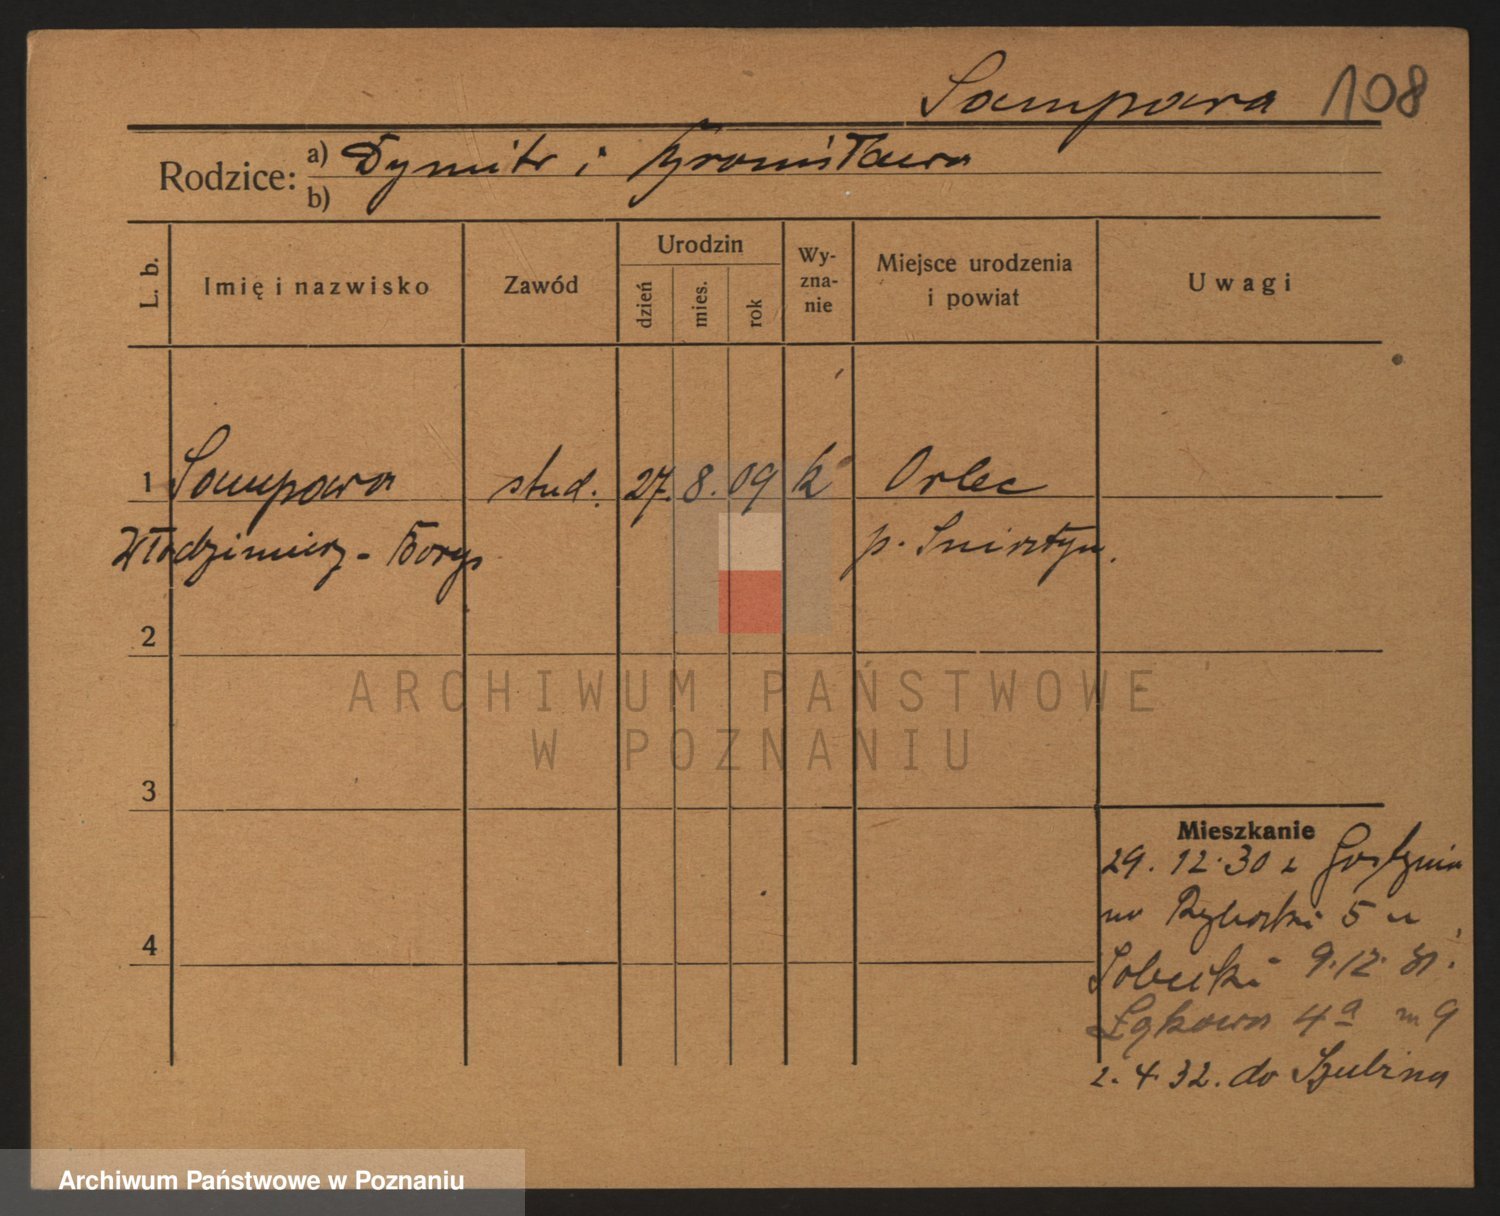 Sampara 108
Rodzice: a) Dymitr i Bronisława
b)
L. b.
Imię i nazwisko
Zawód
Urodzin
dzień
mies.
rok
Wy-
zna-
nie
Miejsce urodzenia
i powiat
Uwagi
1 Sampara stud. 27. 8. 09 k Orlec
Włodzimierz - Borys p. Śniatyn.
2
3
4
Mieszkanie
29. 12. 30 z Gostynia
na Rybaki 5 u
Sobecki 9. 12. 31.
Łąkowa 4a m 9
2. 4. 32. do Szubina
ARCHIWUM PAŃSTWOWE
W POZNANIU
Archiwum Państwowe w Poznaniu